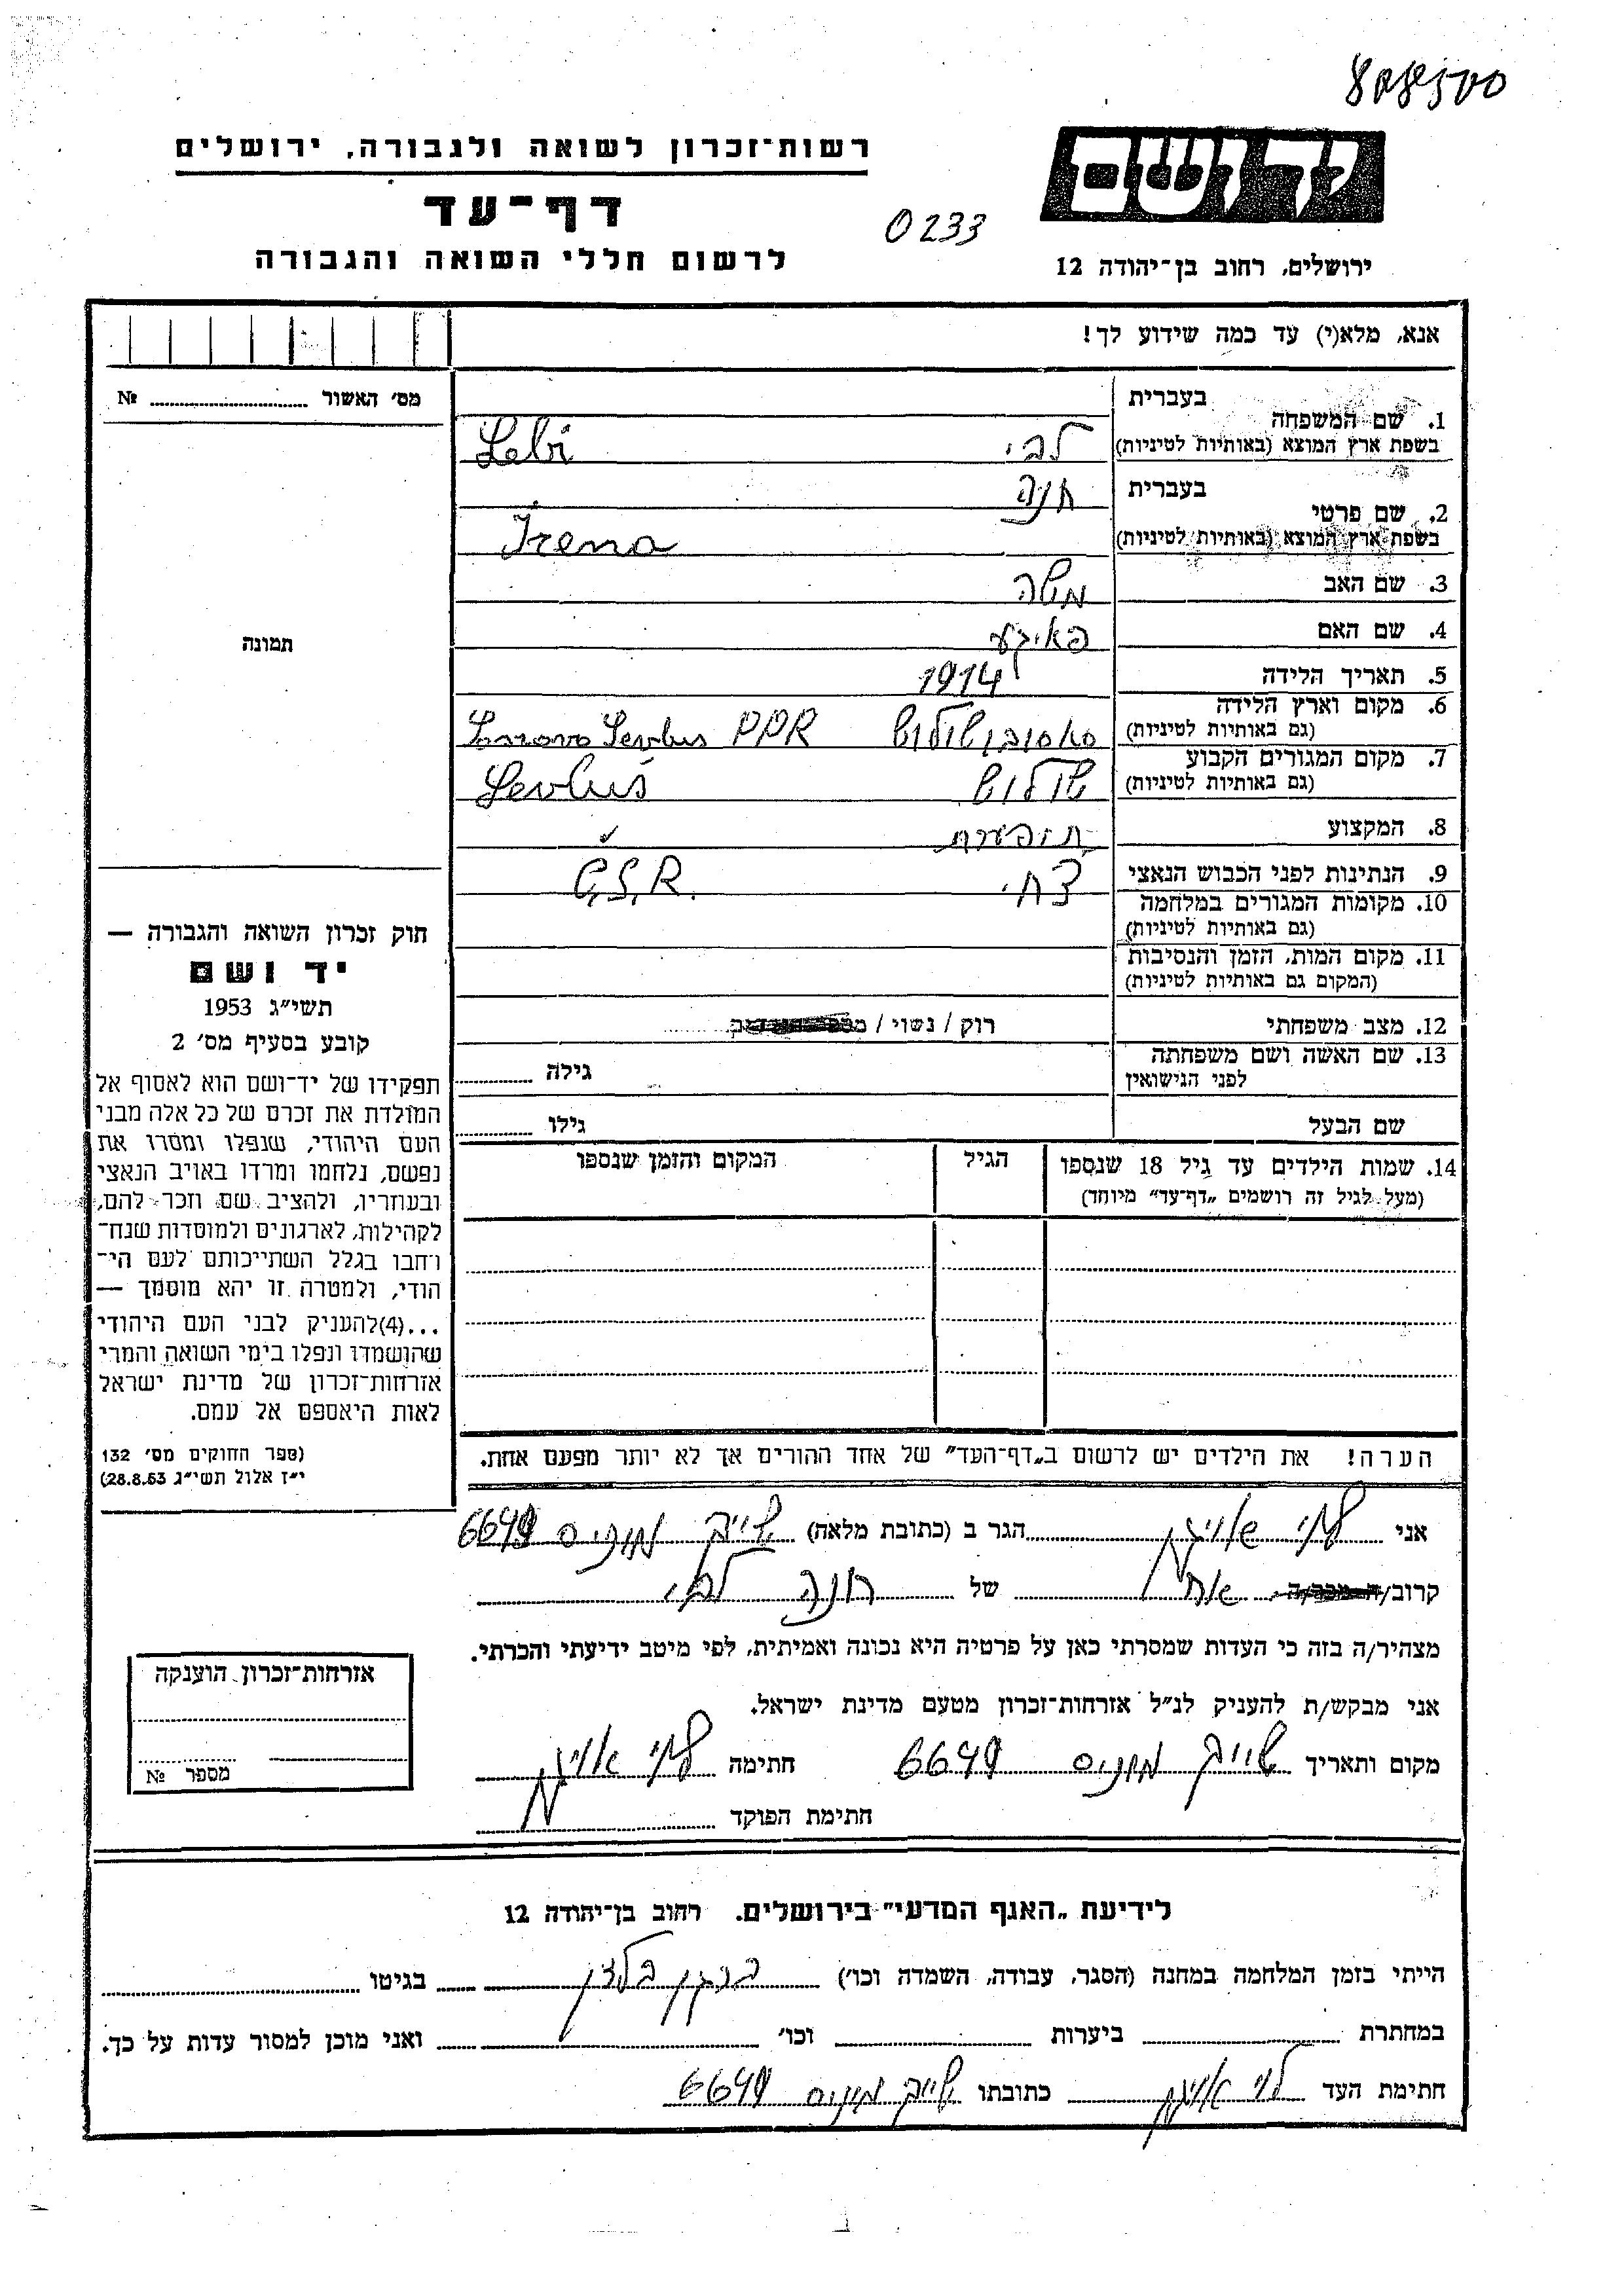 רשות־זכרון לשואה ולגבורה, ירושלים
דף־עד
לרשום חללי השואה והגבורה
0233
ידושם
ירושלים, רחוב בן־יהודה 12
אנא, מלא(י) עד כמה שידוע לך!
מס׳ האשור № 
1. שם המשפחה בעברית
בשפת ארץ המוצא (באותיות לטיניות) לבי Lebi
2. שם פרטי בעברית חנה
בשפת ארץ המוצא (באותיות לטיניות) Irena
3. שם האב משה
4. שם האם פאיגע
5. תאריך הלידה 1914
6. מקום וארץ הלידה
(גם באותיות לטיניות) PPR
7. מקום המגורים הקבוע
(גם באותיות לטיניות) Sevluš
8. המקצוע תופערת
9. הנתינות לפני הכבוש הנאצי צ׳כי Č.S.R.
10. מקומות המגורים במלחמה
(גם באותיות לטיניות)
11. מקום המות, הזמן והנסיבות
(המקום גם באותיות לטיניות)
12. מצב משפחתי רוק / נשוי /
13. שם האשה ושם משפחתה
לפני הנישואין גילה
שם הבעל גילו
14. שמות הילדים עד גיל 18 שנספו הגיל המקום והזמן שנספו
(מעל לגיל זה רושמים „דף־עד״ מיוחד)
הערה! את הילדים יש לרשום ב„דף־העד״ של אחד ההורים אך לא יותר מפעם אחת.
תמונה
חוק זכרון השואה והגבורה —
יד ושם
תשי״ג 1953
קובע בסעיף מס׳ 2
תפקידו של יד־ושם הוא לאסוף אל
המולדת את זכרם של כל אלה מבני
העם היהודי, שנפלו ומסרו את
נפשם, נלחמו ומרדו באויב הנאצי
ובעוזריו, ולהציב שם וזכר להם,
לקהילות, לארגונים ולמוסדות שנח־
רחבו בגלל השתייכותם לעם הי־
הודי, ולמטרה זו יהא מוסמך —
...(4)להעניק לבני העם היהודי
שהושמדו ונפלו בימי השואה והמרי
אזרחות־זכרון של מדינת ישראל
לאות היאספם אל עמם.
(ספר החוקים מס׳ 132
י״ז אלול תשי״ג 28.8.53)
אני הגר ב (כתובת מלאה) שייך מוניס 6649
קרוב/ אח של חנה לבי
מצהיר/ה בזה כי העדות שמסרתי כאן על פרטיה היא נכונה ואמיתית, לפי מיטב ידיעתי והכרתי.
אני מבקש/ת להעניק לנ״ל אזרחות־זכרון מטעם מדינת ישראל.
מקום ותאריך שייך מוניס 6649 חתימה
חתימת הפוקד
אזרחות־זכרון הוענקה
מספר №
לידיעת „האגף המדעי״ בירושלים. רחוב בן־יהודה 12
הייתי בזמן המלחמה במחנה (הסגר, עבודה, השמדה וכו׳) ברגן בלזן בגיטו
במחתרת ביערות וכו׳ ואני מוכן למסור עדות על כך.
חתימת העד כתובתו שייך מוניס 6649